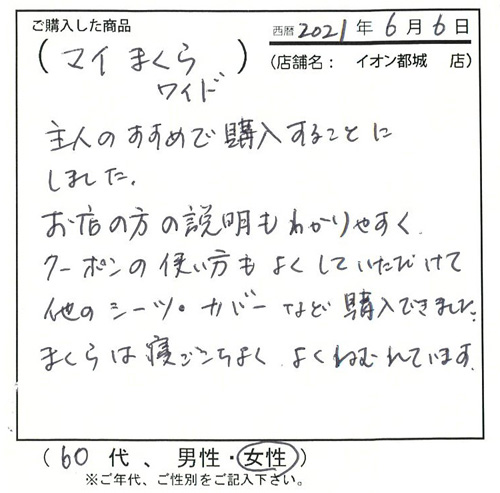 ご購入した商品
西暦 2021 年 6 月 6 日
(マイまくら)
ワイド
(店舗名： イオン都城 店)
主人のすすめで購入することに
しました。
お店の方の説明もわかりやすく
クーポンの使い方もよくしていただけて
他のシーツ・カバーなど購入できました。
まくらは寝ごこちよく よくねむれています。
(60代、男性・女性)
※ご年代、ご性別をご記入下さい。